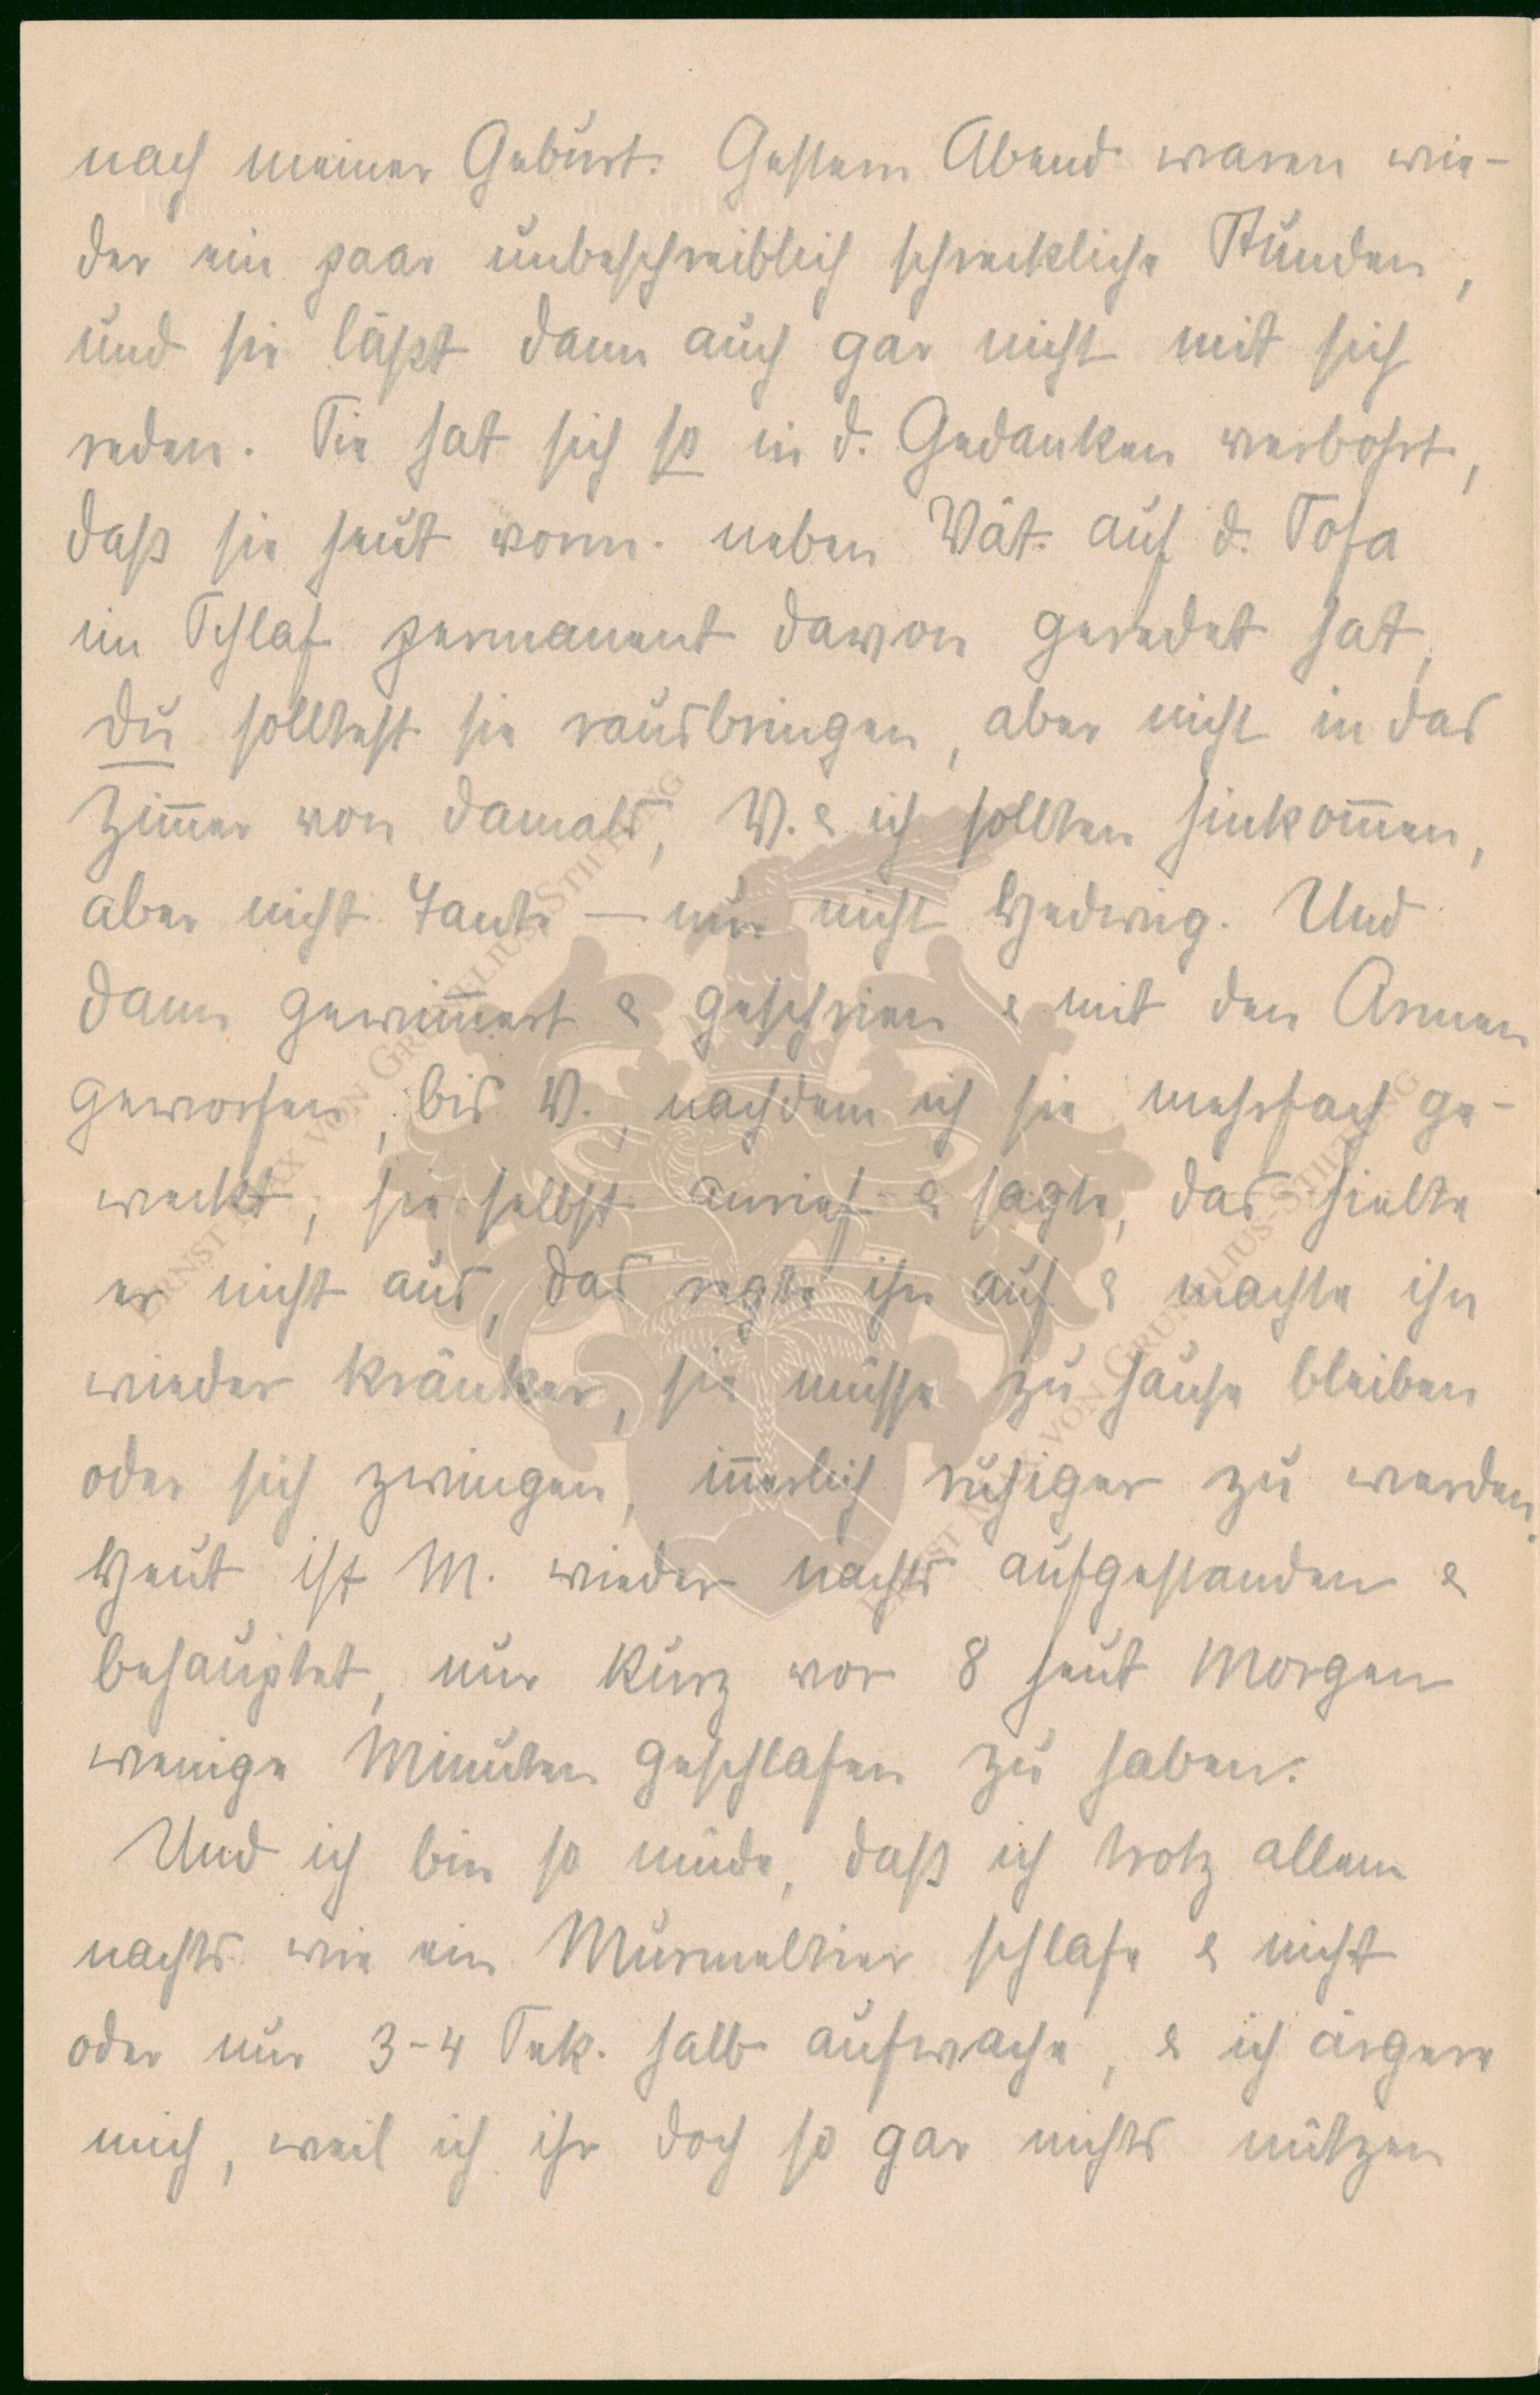 nach meiner Geburt. Gestern Abend waren wie-
der ein paar unbeschreiblich schreckliche Stunden,
und sie läßt dann auch gar nicht mit sich
reden. Sie hat sich so in d. Gedanken verbohrt,
daß sie heut vorm. neben Vat. auf d. Sofa
im Schlaf permanent davon geredet hat,
du solltest sie rausbringen, aber nicht in das
Zim̅er von damals, V. & ich sollten hinkom̅en,
aber nicht Tante — nur nicht Hedwig. Und
dann gewim̅ert & geschrien & mit den Armen
geworfen, bis V., nachdem ich sie mehrfach ge-
weckt, sie selbst anrief & sagte, das hielte
er nicht aus, das regte ihn auf & machte ihn
wieder kränker, sie müsse zu hause bleiben
oder sich zwingen, in̅erlich ruhiger zu werden.
Heut ist M. wieder nachts aufgestanden &
behauptet, nur kurz vor 8 heut Morgen
wenige Minuten geschlafen zu haben.
Und ich bin so müde, daß ich trotz allem
nachts wie ein Murmeltier schlafe & nicht
oder nur 3-4 Sek. halb aufwache, & ich ärgere
mich, weil ich ihr doch so gar nichts nützen
ERNST MAX VON GRUNELIUS-STIFTUNG
ERNST MAX VON GRUNELIUS-STIFTUNG